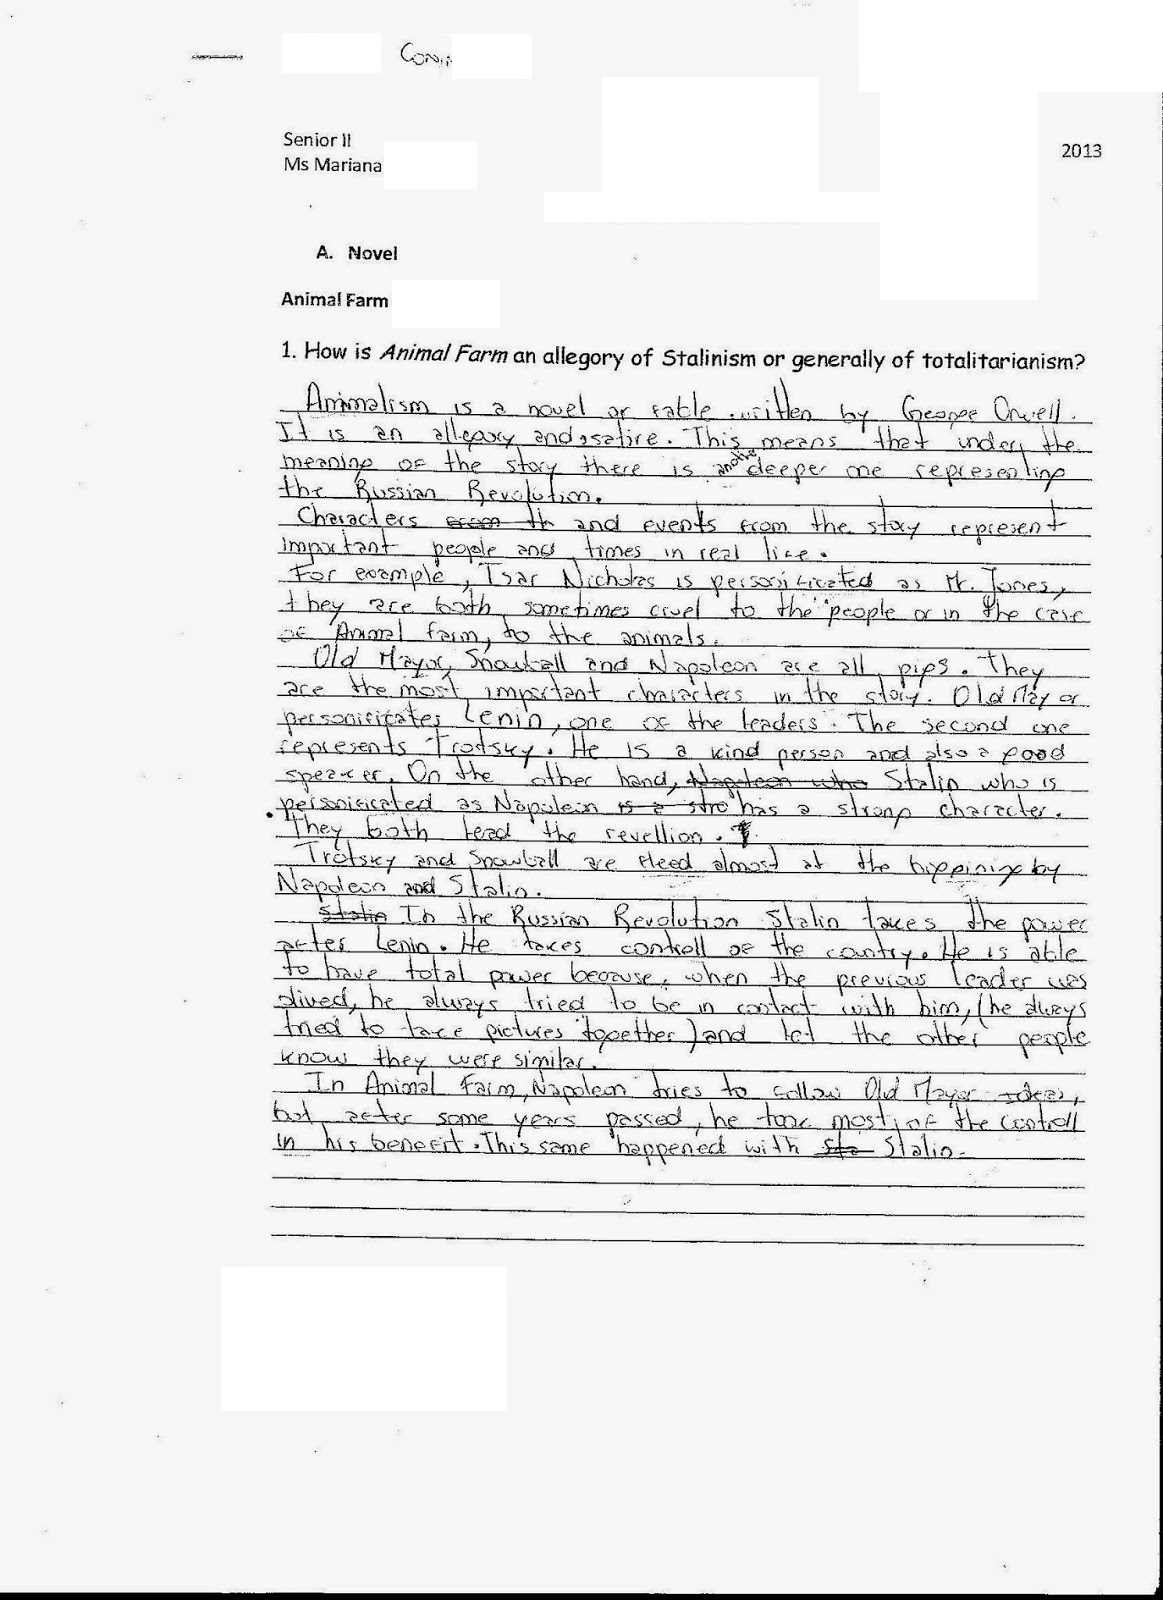 Senior II
2013
Ms Mariana
A. Novel
Animal Farm
1. How is Animal Farm an allegory of Stalinism or generally of totalitarianism?
Animalism is a novel or fable written by George Orwell.
It is an allegory and satire. This means that under the
meaning of the story there is another deeper one representing
the Russian Revolution.
Characters and events from the story represent
important people and times in real life.
For example, Tsar Nicholas is personificated as Mr. Jones,
they are both sometimes cruel to the people or in the case
of Animal farm, to the animals.
Old Mayor, Snowball and Napoleon are all pigs. They
are the most important characters in the story. Old Mayor
personificates Lenin, one of the leaders. The second one
represents Trotsky. He is a kind person and also a good
speaker. On the other hand, Napoleon who Stalin who is
personificated as Napoleon is a stro has a strong character.
They both lead the revellion.
Trotsky and Snowball are fleed almost at the biggining by
Napoleon and Stalin.
Stalin In the Russian Revolution Stalin takes the power
after Lenin. He takes controll of the country. He is able
to have total power because, when the previous leader was
alived, he always tried to be in contact with him, (he always
tried to take pictures together) and let the other people
know they were similar.
In Animal Farm, Napoleon tries to follow Old Mayor ideas,
but after some years passed, he took most of the controll
in his benefit. This same happened with Sta Stalin.